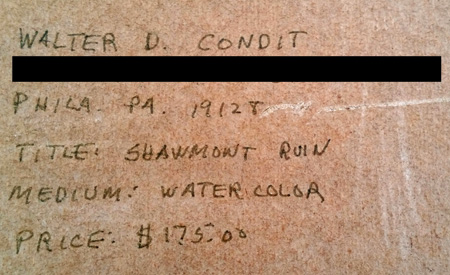 WALTER D. CONDIT
PHILA. PA. 19128
TITLE: SHAWMONT RUIN
MEDIUM: WATER COLOR
PRICE: $175.00